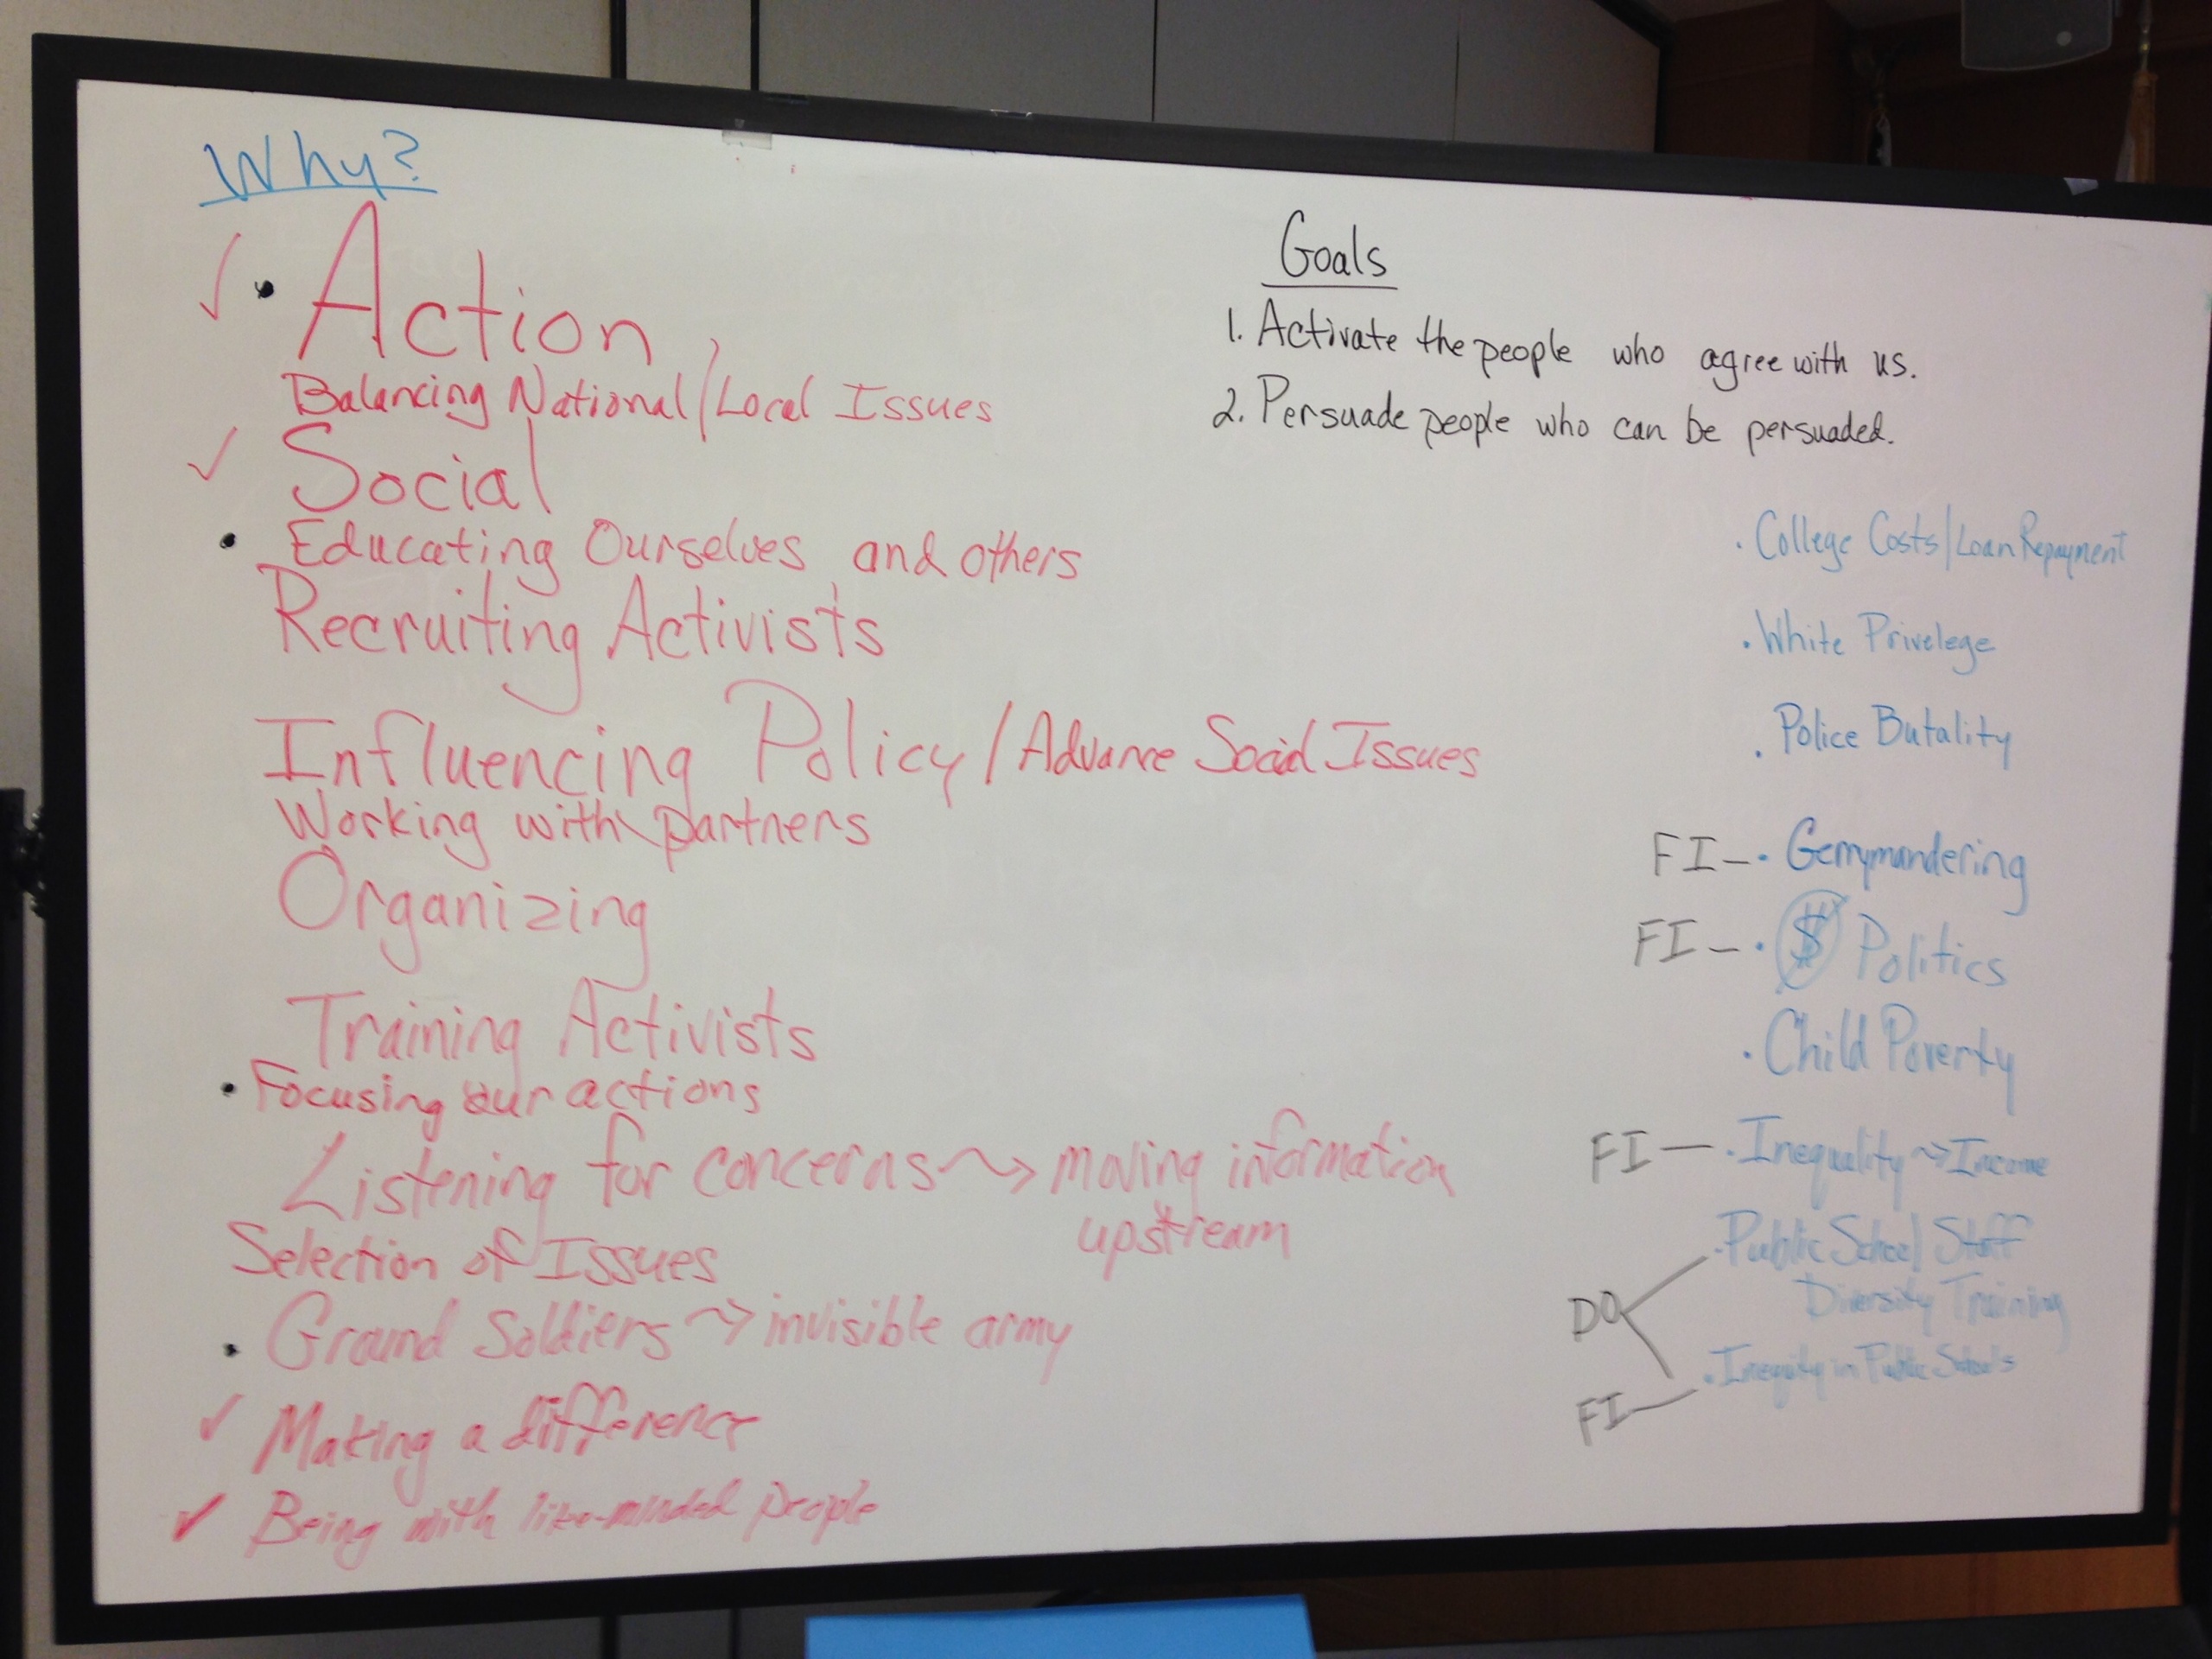 Why?
✓ • Action
Balancing National/Local Issues
✓ Social
• Educating Ourselves and others
Recruiting Activists
Influencing Policy / Advance Social Issues
Working with partners
Organizing
Training Activists
• Focusing our actions
Listening for concerns ~> moving information
upstream
Selection of Issues
• Ground Soldiers ~> invisible army
✓ Making a difference
✓ Being with like-minded people
Goals
1. Activate the people who agree with us.
2. Persuade people who can be persuaded.
• College Costs/Loan Repayment
• White Privelege
• Police Butality
FI – • Gerrymandering
FI – • $ Politics
• Child Poverty
FI — • Inequality ~> Income
• Public School Staff
Diversity Training
DO
• Inequity in Public Schools
FI —